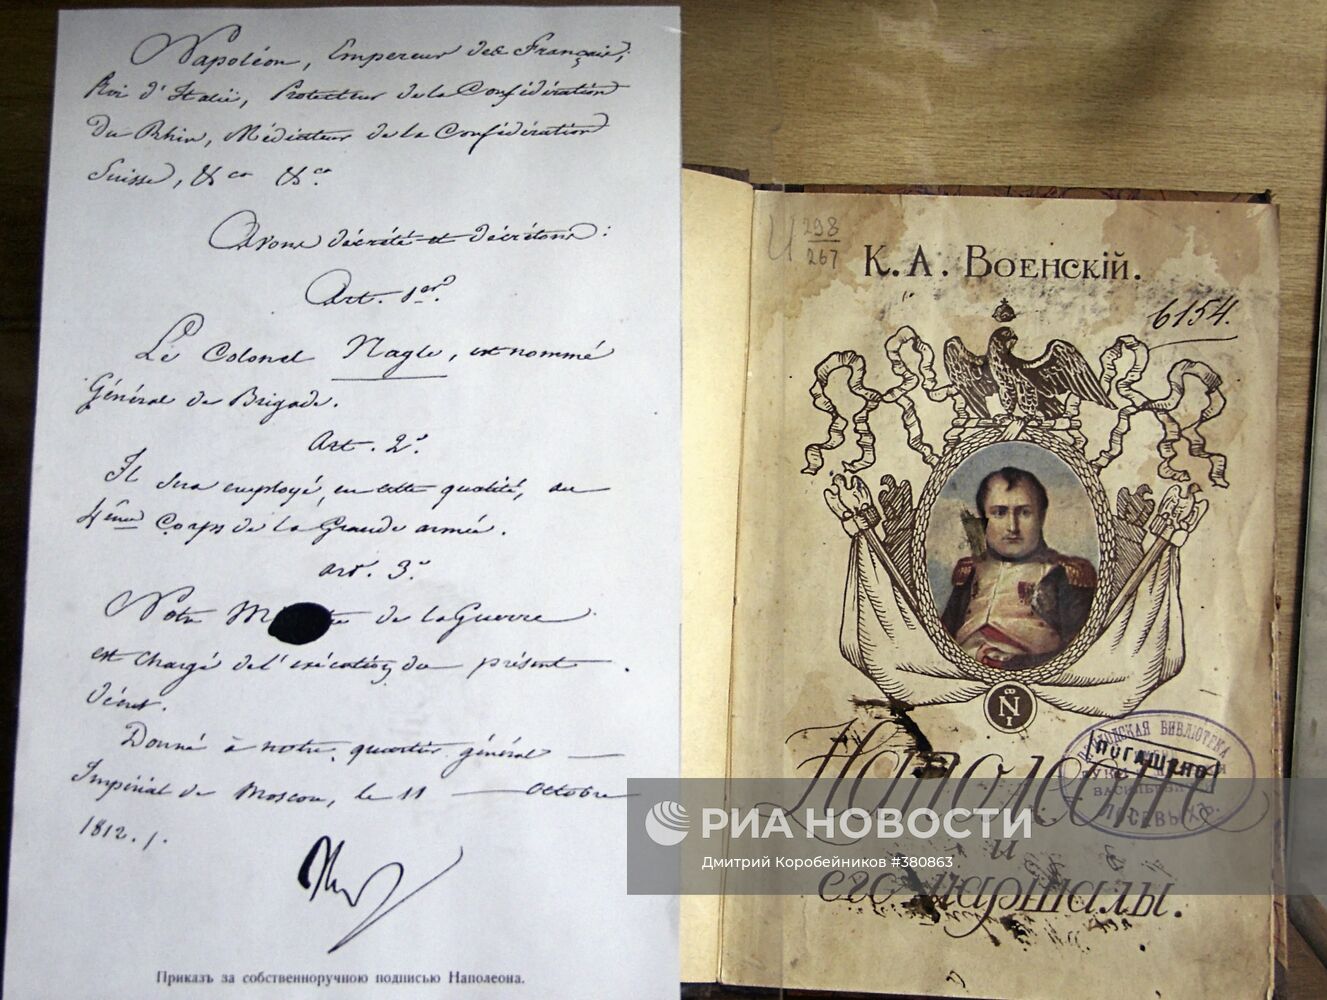 Napoléon, Empereur des Français,
Roi d'Italie, Protecteur de la Confédération
Du Rhin, Médiateur de la Confédération
Suisse, &ca &ca.
Avons décrété et décrétons :
Art. 1er.
Le Colonel Nagle, est nommé
Général de Brigade.
Art. 2e
Il sera employé, en cette qualité, au
4ème Corps de la Grande armée.
art. 3e
Notre de la Guerre
est chargé de l'exécution du présent
décret.
Donné à notre quartier général
Impérial de Moscou, le 11 Octobre
1812. /.
Приказъ за собственноручною подписью Наполеона.
И 298
267
К. А. Военскій.
6154.
N
I
Наполеонъ
и
его маршалы.
БИБЛІОТЕКА
ПОГАШЕНО
РИА НОВОСТИ
Дмитрий Коробейников #380863